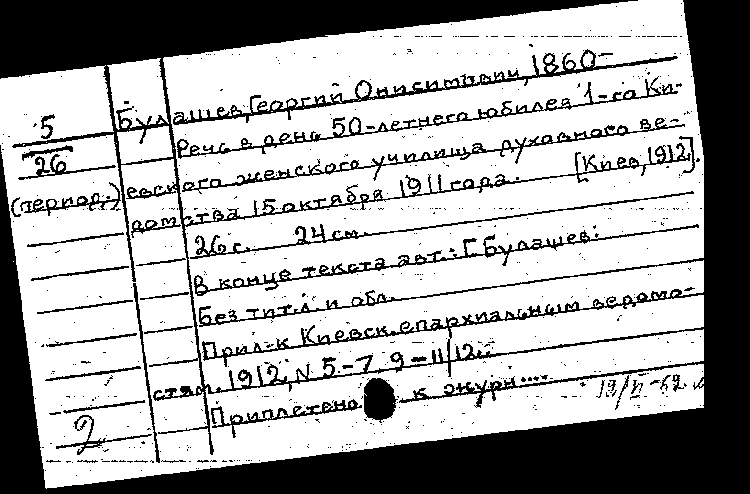 Булашев, Георгий Онисимович, 1860-
5
26
(период.)
Речь в день 50-летнего юбилея 1-го Ки-
евского женского училища духовного ве-
домства 15 октября 1911 года. [Киев, 1912].
26 с. 24 см.
В конце текста авт.: Г. Булашев.
Без тит. л. и обл.
Прил. к Киевск. епархиальным ведомо-
стям. 1912, N 5-7, 9-11/12.
Приплетена к журн....
2